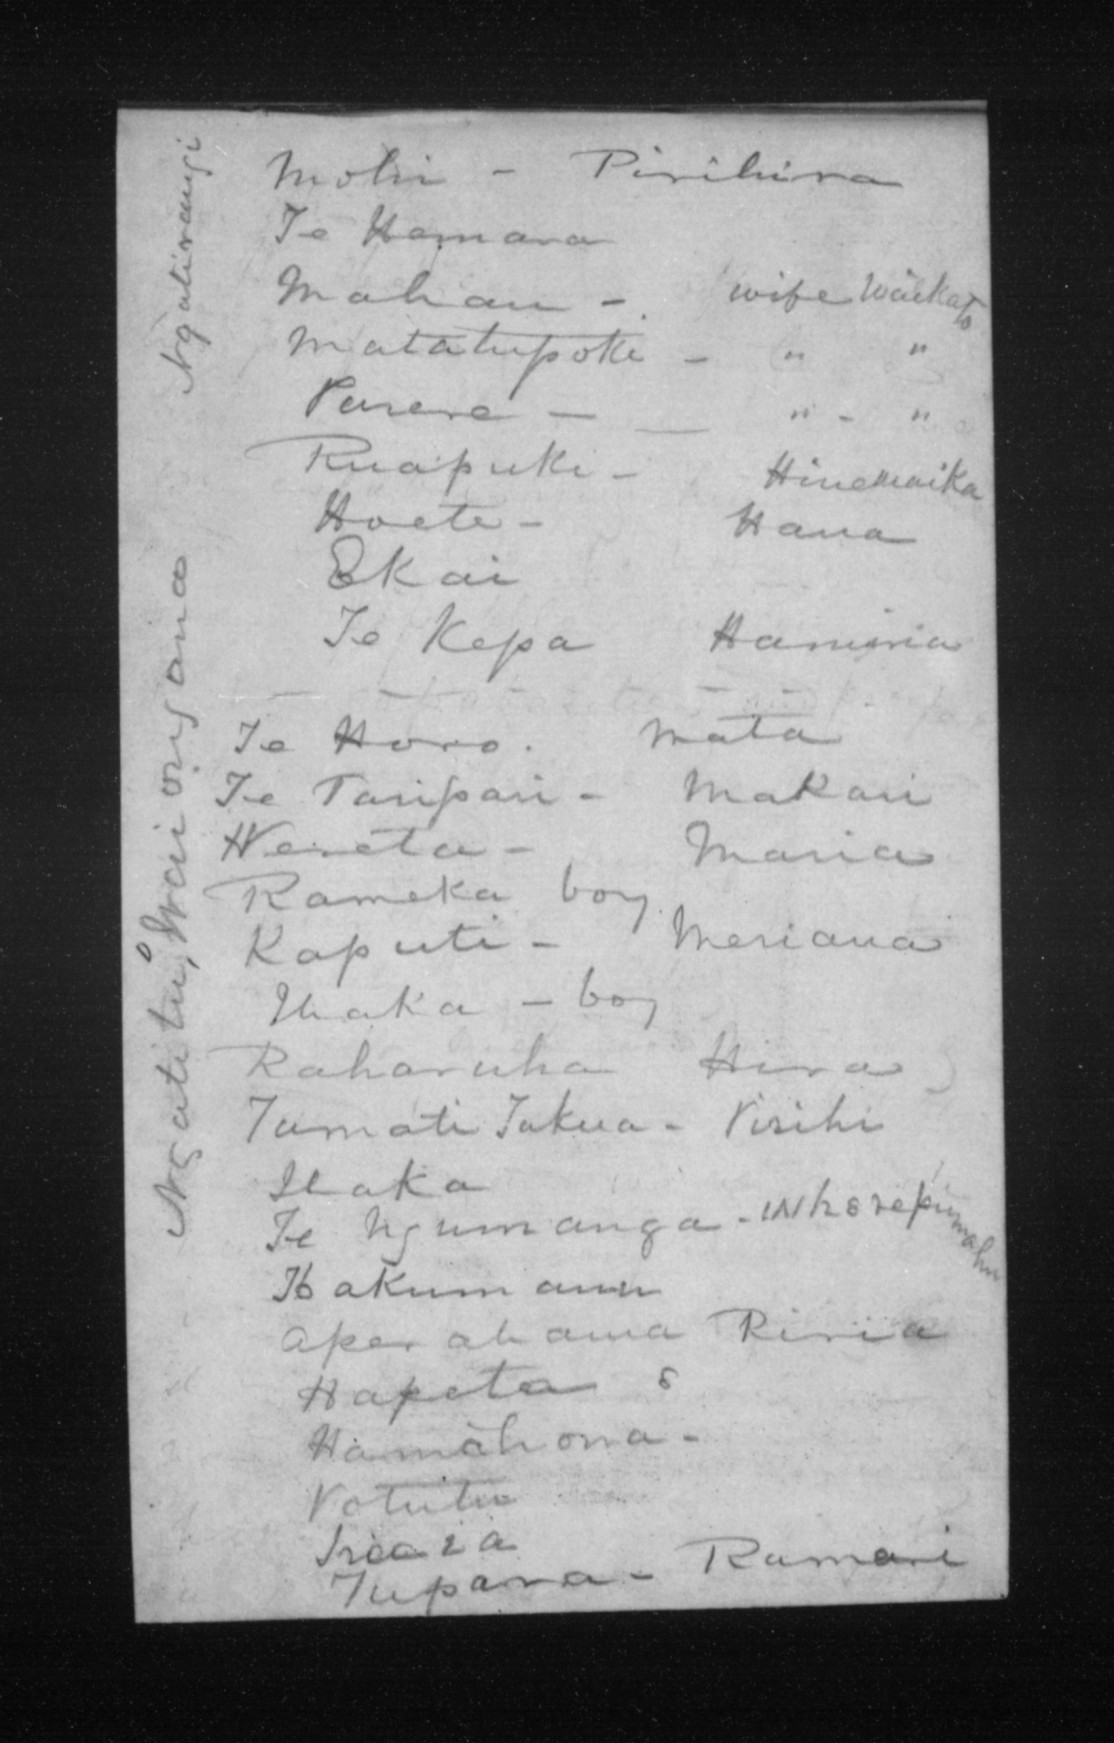 Ngatirangi
Mohi - Pirihira
Te Hamara
Mahau - wife Waikato
Matatupoki - " "
Parera - " - "
Ruapuke - Hinewaika
Hoete - Hana
Ekai
Te Kepa Hamiria
Ngatitu, Waiongona
Te Horo. Mata
Te Taripari - Makari
Wereta - Maria
Rameka boy
Kaputi - Meriana
Ihaka - boy
Raharuha Hira
Tamati Takua - Pirihi
Ihaka
Te Ngumanga -
Aperahama Riria
Hapeta
Hamahona -
Potutu
Tupara - Ramari